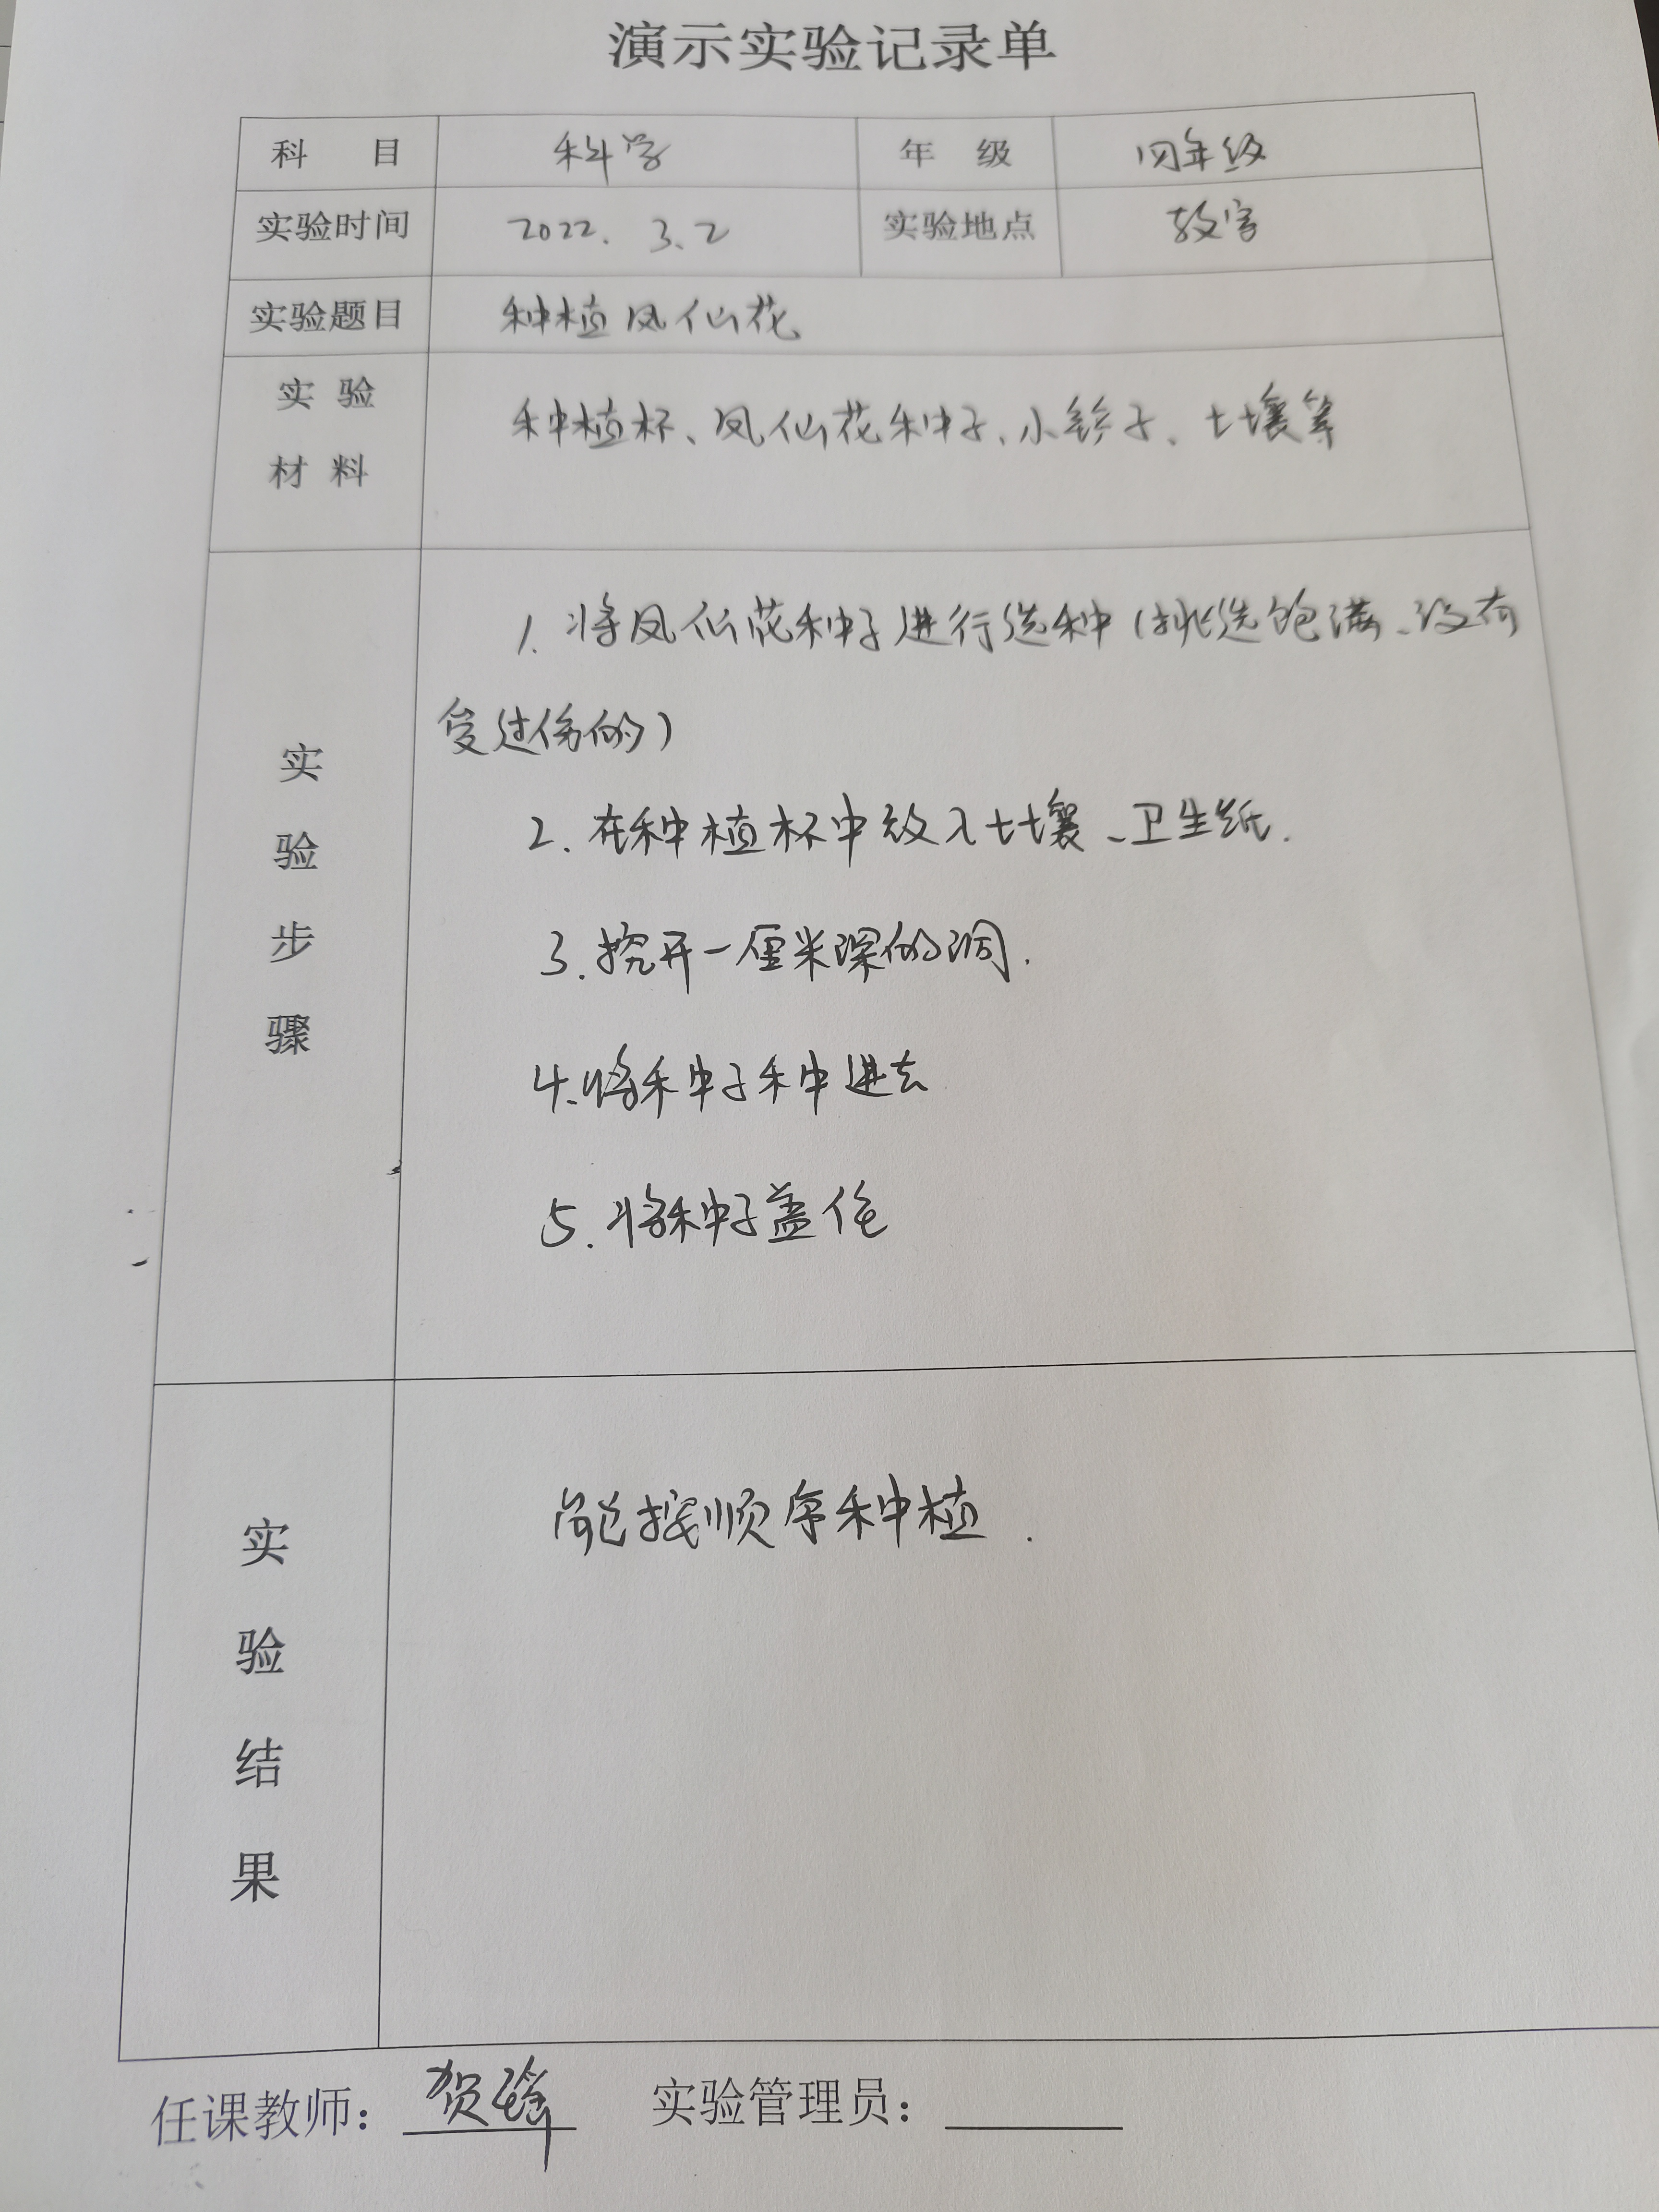 演示实验记录单
科 目 科学 年 级 四年级
实验时间 2022.3.2 实验地点 教室
实验题目 种植凤仙花
实 验
材 料
种植杯、凤仙花种子、小铲子、土壤等
实验步骤
1. 将凤仙花种子进行选种(挑选饱满、没有
受过伤的)
2. 在种植杯中放入土壤、卫生纸.
3. 挖开一厘米深的洞.
4. 将种子种进去
5. 将种子盖住
实验结果
能按顺序种植.
任课教师: 贺 实验管理员: